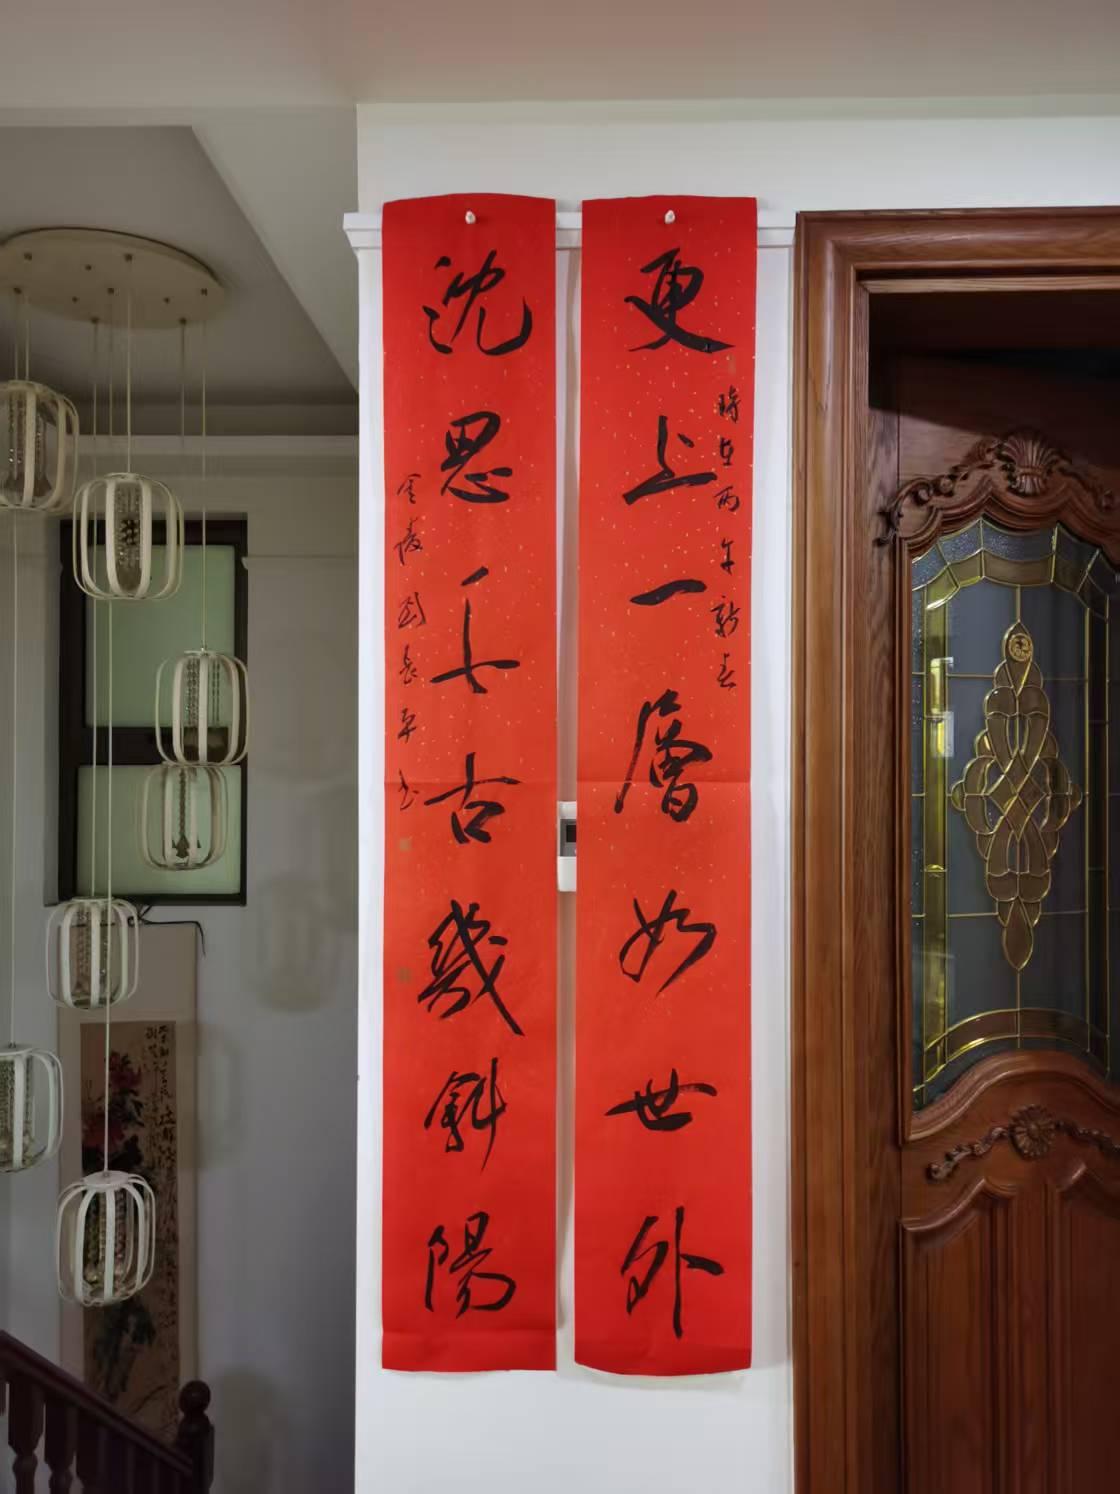 更上一層如世外
時在丙午新春
沈思千古幾斜陽
金陵劉長平書